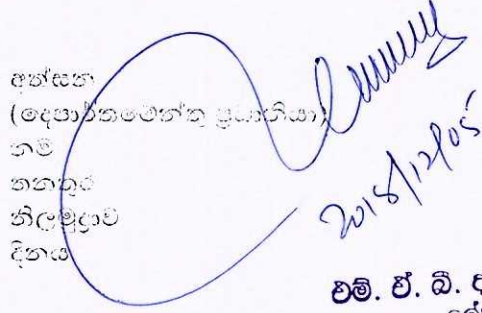 අත්සන
(දෙපාර්තමේන්තු ප්‍රධානියා)
නම
තනතුර
නිලමුද්‍රාව
දිනය
2018/12/05
එම්. ඒ. බී.